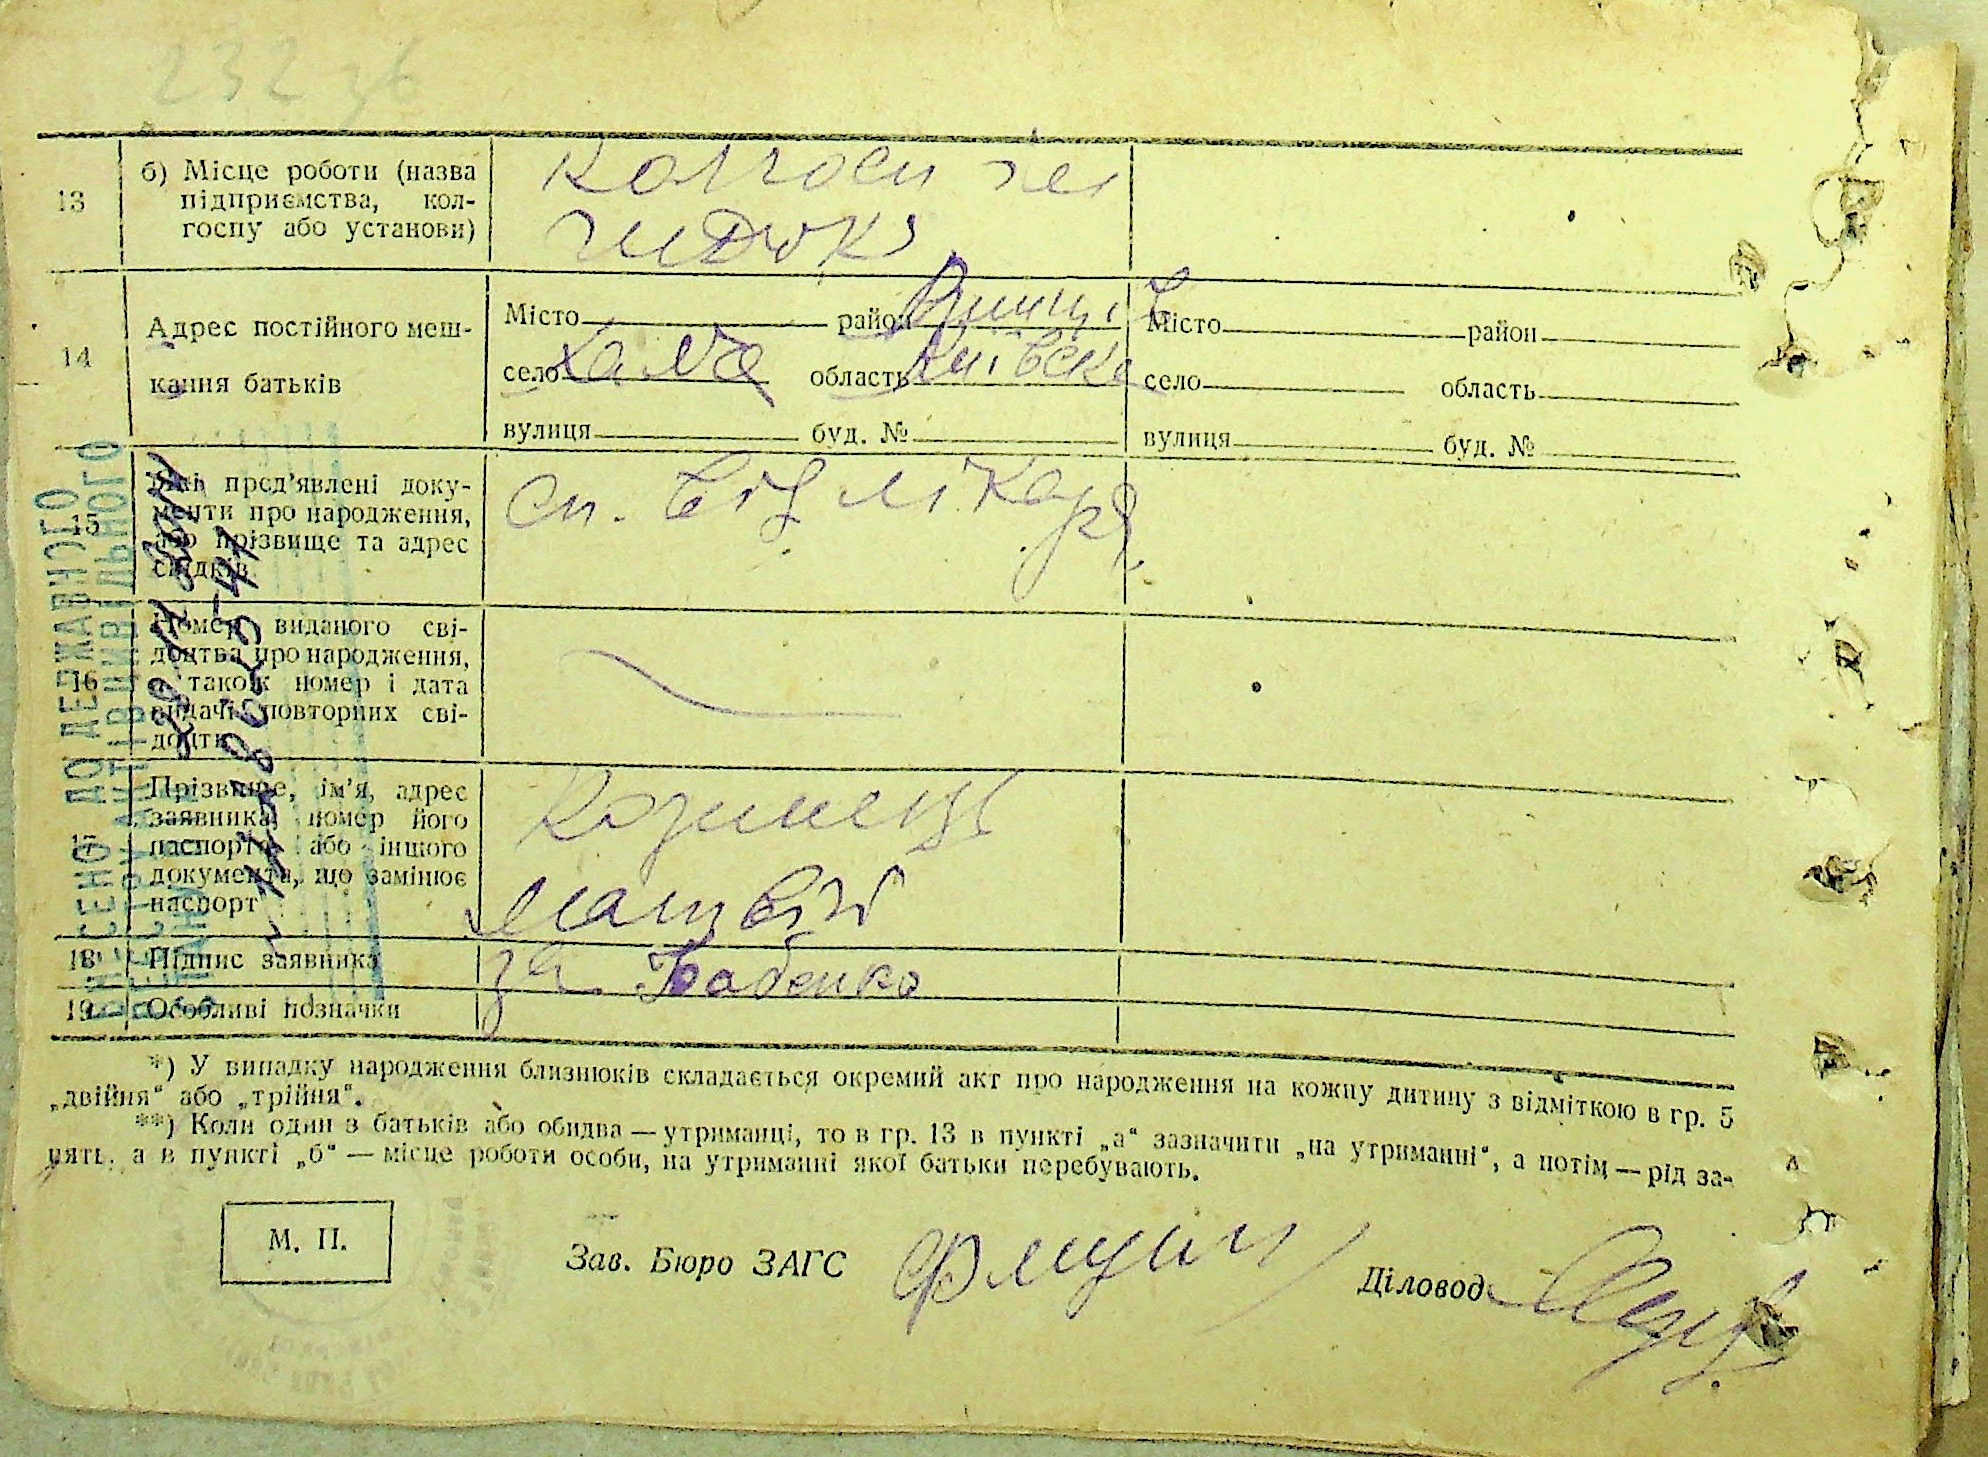 232 зв
13
б) Місце роботи (назва
підприємства, кол-
госпу або установи)
14
Адрес постійного меш-
кання батьків
Місто район
село область Київська
вулиця буд. №
Місто район
село область
вулиця буд. №
15
пред'явлені доку-
менти про народження,
або прізвище та адрес
свідків
сп. від лікаря
16
Номер виданого сві-
доцтва про народження,
а також номер і дата
видачі повторних сві-
доцтв
17
Прізвище, ім'я, адрес
заявника, номер його
паспорта або іншого
документа, що замінює
паспорт
Матвій
18
Підпис заявника
за Бабенко
19
Особливі позначки
ВНЕСЕНО ДО ДЕРЖАВНОГО
РЕЄСТРУ АКТІВ ЦИВІЛЬНОГО
СТАНУ
*) У випадку народження близнюків складається окремий акт про народження на кожну дитину з відміткою в гр. 5
„двійня“ або „трійня“.
**) Коли один з батьків або обидва — утриманці, то в гр. 13 в пункті „а“ зазначити „на утриманні“, а потім — рід за-
нять, а в пункті „б“ — місце роботи особи, на утриманні якої батьки перебувають.
М. П.
Зав. Бюро ЗАГС
Діловод